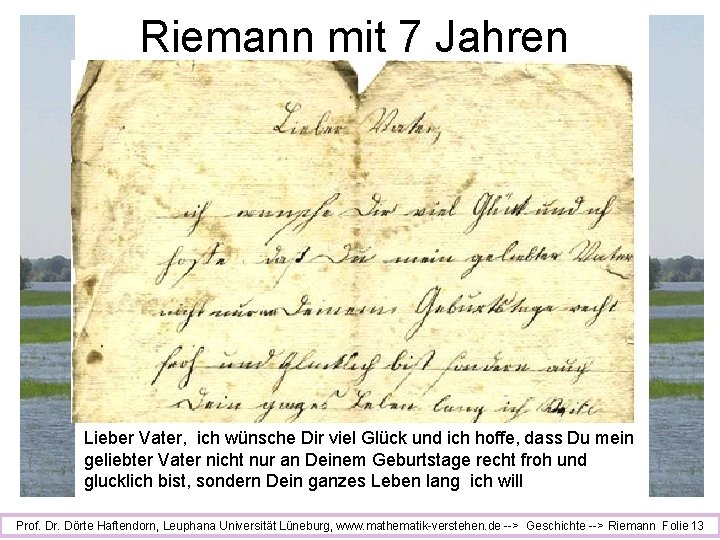 Riemann mit 7 Jahren
Lieber Vater,
ich wunsche Dir viel Glück und ich
hoffe. daß Du mein geliebter Vater
nicht nur an Deinem Geburtstage recht
froh und Glücklich bist sondern auch
Dein ganzes Leben lang ich
Lieber Vater, ich wünsche Dir viel Glück und ich hoffe, dass Du mein
geliebter Vater nicht nur an Deinem Geburtstage recht froh und
glucklich bist, sondern Dein ganzes Leben lang ich will
Prof. Dr. Dörte Haftendorn, Leuphana Universität Lüneburg, www. mathematik-verstehen. de --> Geschichte --> Riemann Folie 13